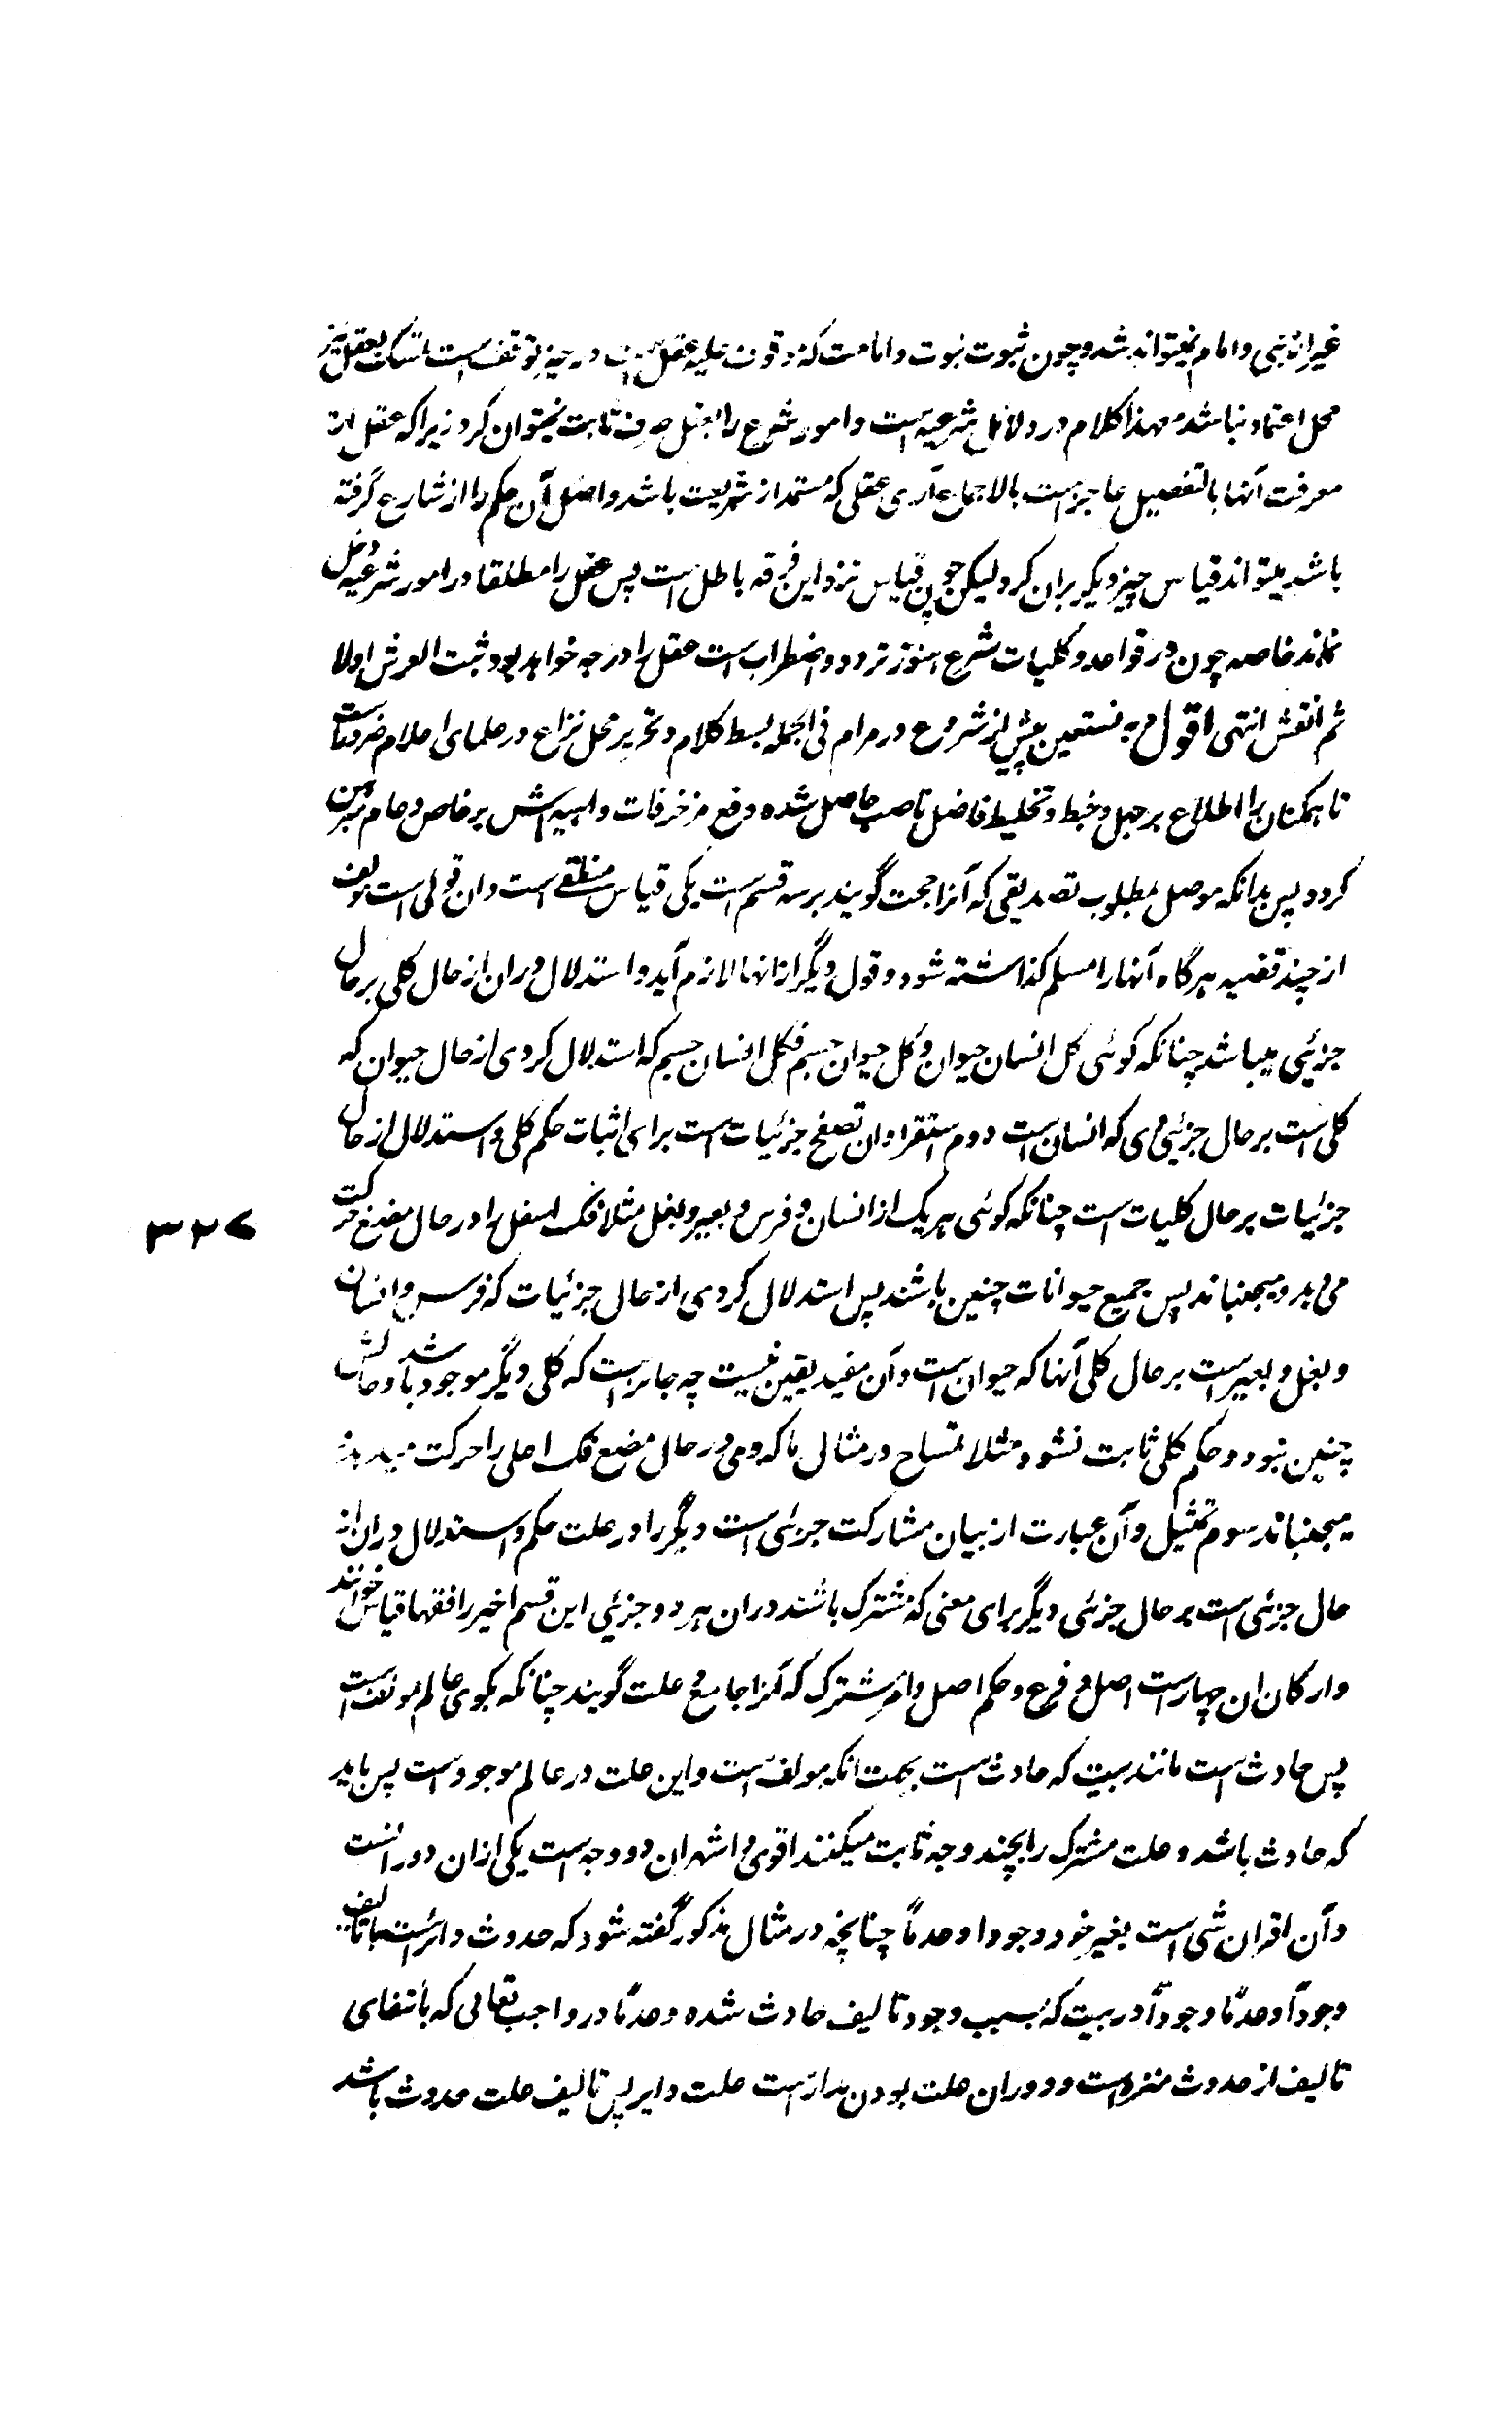 غیر از نبی و امام نمیتواند شد و چون ثبوت نبوت و امامت که موقوف علیه عقل است در حیز توقف است تمسک بعقل نیز
محل اعتماد نباشد معهذا کلام در دلائل شرعیه است و امور شرع را بعقل صرف ثابت نمیتوان کرد زیرا که عقل از
معرفت آنها بالتفصیل عاجز است بالاجماع آری عقلی که مستمد از شریعت باشد و اصل آن حکم را از شارع گرفته
باشد میتواند قیاس چیز دیگر بران کرد لیکن چون قیاس نزد این فرقه باطل است پس عقل را مطلقا در امور شرعیه دخل
نماند خاصه چون در قواعد و کلیات شرع هنوز تردد و اضطراب است عقل را در چه خواهد بود ثبت العرش اولا
ثم انقش انتهی اقول و به نستعین پیش از شروع در مرام فی الجمله بسط کلام و تحریر محل نزاع در علمای اعلام ضرور است
تا همکنان را اطلاع بر جهل و خبط و تخلیط فاضل ناصب حاصل شده دفع مزخرفات واهیه اش بر خاص و عام مبرهن
کردد پس بدانکه موصل بمطلوب تصدیقی که آنرا حجت گویند بر سه قسم است یکی قیاس منطقی است و ان قولی است مولف
از چند قضیه هرگاه آنها را مسلم کذاشته شود و قول دیگر از انها لازم آید و استدلال در ان از حال کلی بر حال
جزئی میباشد چنانکه کوئی کل انسان حیوان و کل حیوان جسم فکل انسان جسم که استدلال کردی از حال حیوان که
کلی است بر حال جزئی وی که انسان است دوم استقرا و ان تصفح جزئیات است برای اثبات حکم کلی و استدلال از حال
جزئیات بر حال کلیات است چنانکه کوئی هر یک از انسان و فرس و بعیر و بغل مثلا فک اسفل را در حال مضغ حرکت
می دهد و میجنباند پس جمیع حیوانات چنین باشند پس استدلال کردی از حال جزئیات که فرس و انسان
و بغل و بعیر است بر حال کلی آنها که حیوان است و آن مفید یقین نیست چه جائز است که کلی دیگر موجود باشد و حالش
چنین نبود و حکم کلی ثابت نشود مثلا تمساح در مثال ما که وی در حال مضغ فک اعلی را حرکت میدهد
میجنباند سوم تمثیل و آن عبارت از بیان مشارکت جزئی است دیگر را در علت حکم و استدلال در ان از
حال جزئی است بر حال جزئی دیگر برای معنی که مشترک باشند در ان هر دو جزئی این قسم اخیر را فقها قیاس خوانند
و ارکان ان چهار است اصل و فرع و حکم اصل و امر مشترک که آنرا جامع و علت گویند چنانکه بگوی عالم مولف است
پس حادث است مانند بیت که حادث است بجهت انکه مولف است و این علت در عالم موجود است پس باید
که حادث باشد و علت مشترک را بچند وجه ثابت میکنند اقوی و اشهر ان دو وجه است یکی ازان دورانست
و آن اقران شی است بغیر خود وجودا و عدماً چنانچه در مثال مذکور گفته شود که حدوث دائر است با تالیف
وجوداً و عدماً وجوداً در بیت که بسبب وجود تالیف حادث شده و عدماً در واجب تعالی که بانتفای
تالیف از حدوث منزه است و دوران علت بودن مدار است علت دایر پس تالیف علت حدوث باشد
۳۲۷